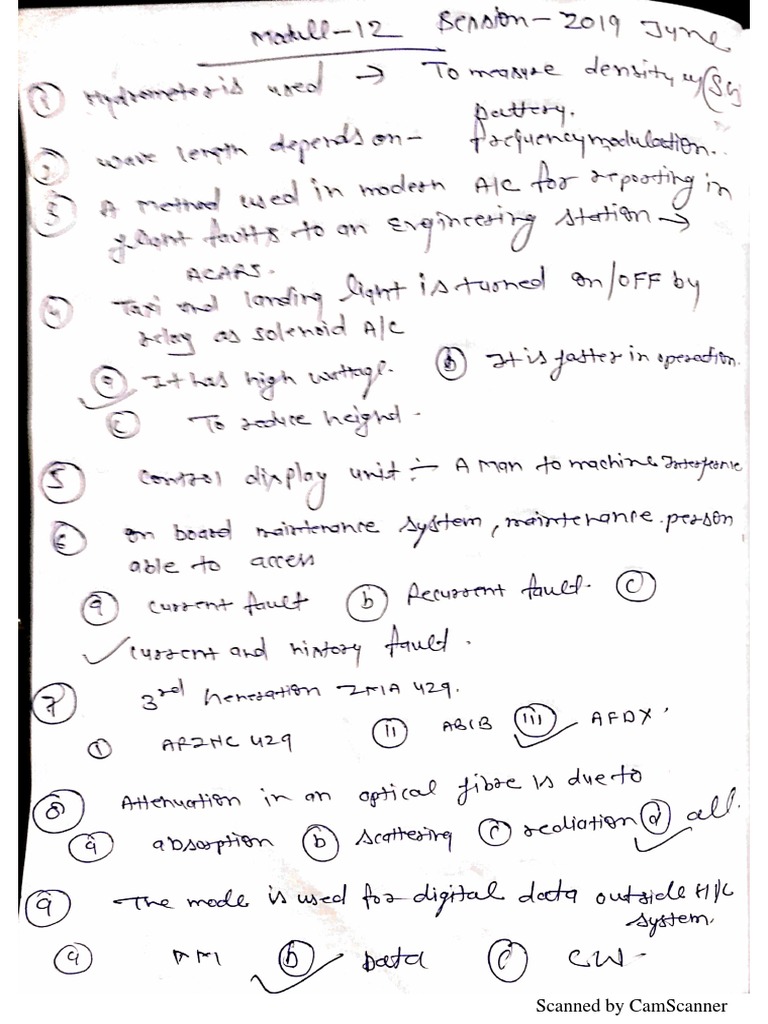 Modull-12 Session-2019 June
① Hydrometer is used → To measure density w/(SG)
battery.
② wave length depends on- frequency modulation..
③ A method used in modern A/C for reporting in
flight faults to an Engineering station →
ACARS.
④ Taxi and landing light is turned on/OFF by
relay as solenoid A/C
ⓐ It has high wattage. ⓑ It is faster in operation.
ⓒ To reduce
⑤ Control display unit:- A Man to machine
⑥ on board maintenance system, maintenance person
able to access
ⓐ current fault ⓑ Recurrent fault. ⓒ
✓current and history fault.
⑦ 3rd 429.
① ARINC 429 ⓘⓘ ⓘⓘⓘ AFDX
⑧ Attenuation in an optical fibre is due to
ⓐ absorption ⓑ scattering ⓒ rediation ⓓ all.
⑨ The mode is used for digital data outside
system.
ⓐ ⓑ Data ⓒ CW-
Scanned by CamScanner